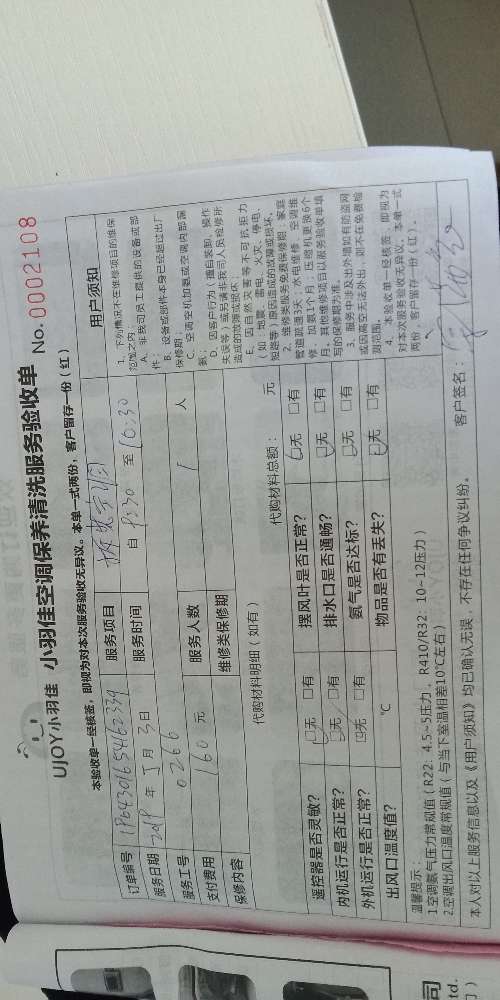 UJOY小羽佳 小羽佳空调保养清洗服务验收单 No. 0002108
本验收单一经核签，即视为对本次服务验收无异议。本单一式两份，客户留存一份（红）
订单编号
服务项目
服务日期 2019 年 5 月 3 日
服务时间 自 9:30 至 10:30
服务工号 0266
服务人数 1 人
支付费用 160 元
维修类保修期
保修内容
代购材料明细（如有）
代购材料总额： 元
遥控器是否灵敏？ □无 □有
摆风叶是否正常？ □无 □有
内机运行是否正常？ □无 □有
排水口是否通畅？ □无 □有
外机运行是否正常？ □无 □有
氨气是否达标？ □无 □有
出风口温度值？ ℃
物品是否有丢失？ □无 □有
用户须知
1、下列情况不在维修项目的维保
范围之内：
A、非我司员工提供的设备或部
件；
B、设备或部件本身已经超过出厂
保修期；
C、空调空机加氨或空调内部漏
氨；
D、因客户行为（擅自装卸、操作
失误等）或另请非我司人员检修所
造成的故障或损坏
E、因自然灾害等不可抗拒力
（如：地震、雷电、火灾、停电、
短路等）原因造成的故障或损坏。
2、维修类服务免费保修期：家庭
管道疏通3天；水电维修、空调维
修、加氨1个月；压缩机更换6个
月。其他维修项目以服务验收单填
写的保修期为准。
3、服务中涉及出外墙如有防盗网
或因高空无法外出，则不在免费检
测范围。
4、本验收单一经核签，即视为
对本次服务验收无异议。本单一式
两份，客户留存一份（红）。
温馨提示：
1.空调氨气压力常规值（R22：4.5~5压力、R410/R32：10~12压力）
2.空调出风口温度常规值（与当下室温相差10℃左右）
本人对以上服务信息以及《用户须知》均已确认无误，不存在任何争议纠纷。
客户签名：
司
td.